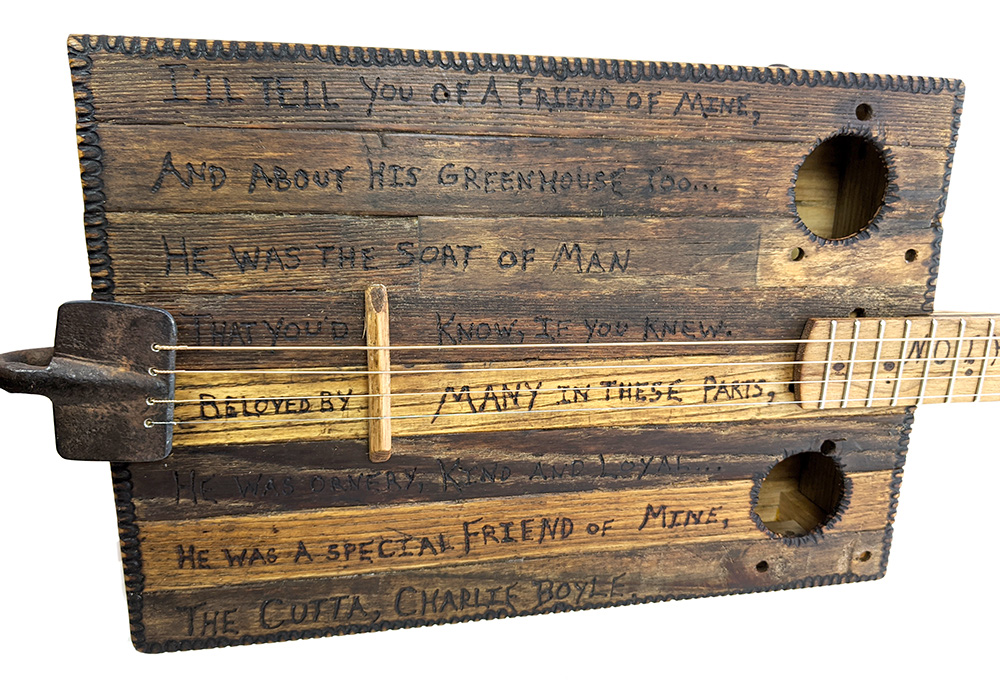 I'LL TELL YOU OF A FRIEND OF MINE,
AND ABOUT HIS GREENHOUSE TOO...
HE WAS THE SORT OF MAN
THAT YOU'D KNOW, IF YOU KNEW.
BELOVED BY MANY IN THESE PARTS,
HE WAS ORNERY, KIND AND LOYAL...
HE WAS A SPECIAL FRIEND OF MINE,
THE CUTTA, CHARLIE BOYLE.